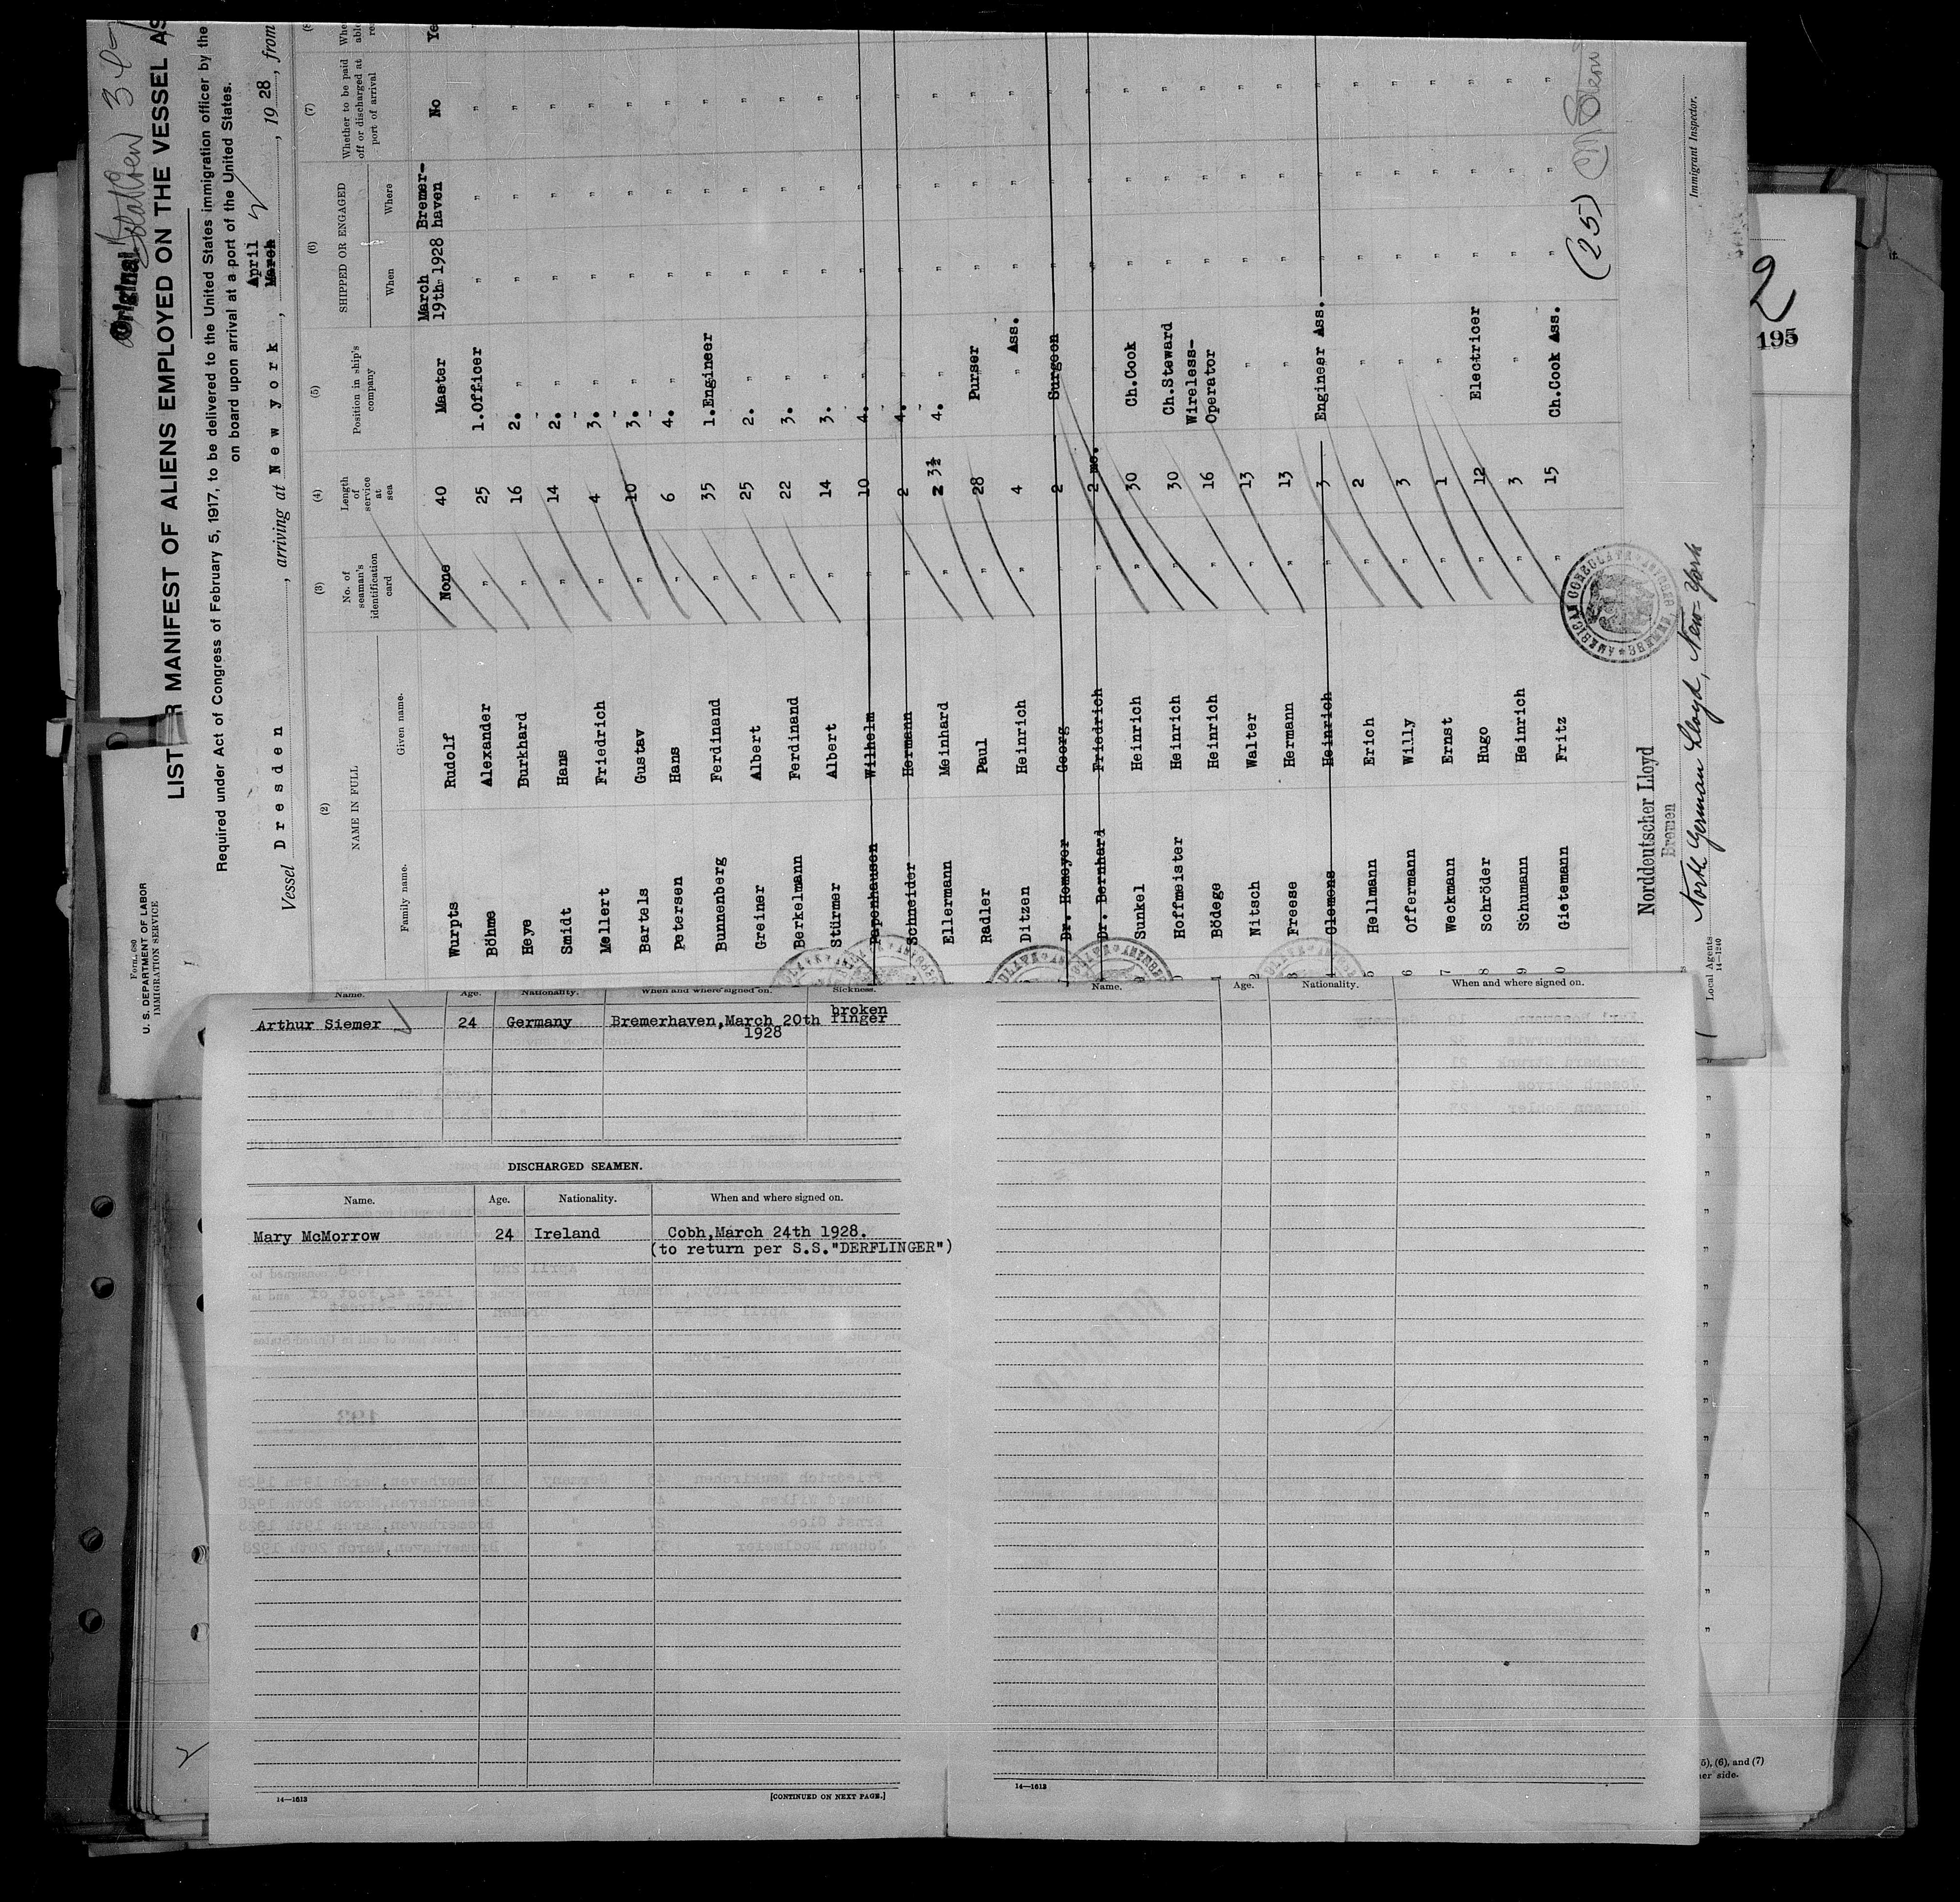 Form 680
U. S. DEPARTMENT OF LABOR
IMMIGRATION SERVICE
Original
LIST OR MANIFEST OF ALIENS EMPLOYED ON THE VESSEL AS
Required under Act of Congress of February 5, 1917, to be delivered to the United States immigration officer by the
on board upon arrival at a port of the United States.
Vessel Dresden, arriving at New york, March April 2, 1928, from
(2) (3) (4) (5) (6) (7)
NAME IN FULL
Family name. Given name.
No. of seaman's identification card
Length of service at sea
Position in ship's company
SHIPPED OR ENGAGED
When Where
Whether to be paid off or discharged at port of arrival
Wurpts Rudolf None 40 Master March 19th 1928 Bremer-haven No Ye
Böhme Alexander " 25 1.Officer " " "
Heye Burkhard " 16 2. " " " "
Smidt Hans " 14 2. " " " "
Mellert Friedrich " 4 3. " " " "
Bartels Gustav " 10 3. " " " "
Petersen Hans " 6 4. " " " "
Bunnenberg Ferdinand " 35 1.Engineer " " "
Greiner Albert " 25 2. " " " "
Berkelmann Ferdinand " 22 3. " " " "
Stürmer Albert " 14 3. " " " "
Papenhausen Wilhelm " 10 4. " " " "
Schneider Hermann " 2 4. " " " "
Ellermann Meinhard " 2 3½ 4. " " " "
Radler Paul " 28 Purser " " "
Ditzen Heinrich " 4 " Ass. " " "
Dr. Homeyer Georg " 2 Surgeon " " "
Dr. Bernhard Friedrich " 2 mo. " " " "
Sunkel Heinrich " 30 Ch.Cook " " "
Hoffmeister Heinrich " 30 Ch.Steward " " "
Bödege Heinrich " 16 Wireless-Operator " " "
Nitsch Walter " 13 " " " "
Freese Hermann " 13 " " " "
Clemens Heinrich " 3 Engineer Ass. " " "
Hellmann Erich " 2 " " " "
Offermann Willy " 3 " " " "
Weckmann Ernst " 1 " " " "
Schröder Hugo " 12 Electricer " " "
Schumann Heinrich " 3 " " " "
Gietemann Fritz " 15 Ch.Cook Ass. " " "
(25)
Norddeutscher Lloyd
Bremen
North German Lloyd, New-York
Local Agents
14-1240
Immigrant Inspector.
2
195
Name. Age. Nationality. When and where signed on. Sickness.
Arthur Siemer 24 Germany Bremerhaven,March 20th 1928 broken finger
DISCHARGED SEAMEN.
Name. Age. Nationality. When and where signed on.
Mary McMorrow 24 Ireland Cobh,March 24th 1928.
(to return per S.S."DERFLINGER")
14—1613
[CONTINUED ON NEXT PAGE.]
Name. Age. Nationality. When and where signed on.
14—1613
5), (6), and (7)
er side.